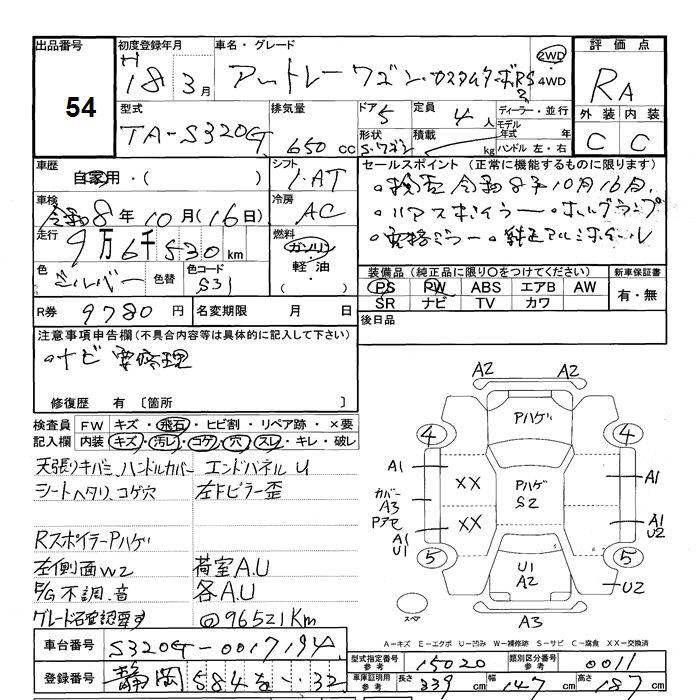 出品番号
54
初度登録年月
H
18年 3月
車名・グレード
アトレーワゴン カスタムターボRS
2WD
4WD
評価点
RA
外装 内装
C C
型式
TA-S320G
排気量
650 cc
ドア 5
形状 S・ワゴン
定員 4人
積載 kg
ディーラー・並行
モデル年式 年
ハンドル 左・右
車歴
自家用・( )
シフト
I・AT
車検
令和8年10月(16日)
冷房
AC
走行
9万6千530km
燃料
ガソリン
軽油
( )
色
シルバー
色替
色コード
S31
R券 9780円
名変期限 月 日
セールスポイント(正常に機能するものに限ります)
・検査 令和8年10月16日.
・リアスポイラー ・ホルグランプ
・電格ミラー ・純正アルミホイール
装備品(純正品に限り○をつけてください)
PS PW ABS エアB AW
SR ナビ TV カワ
新車保証書
有・無
後日品
注意事項申告欄(不具合内容等は具体的に記入して下さい)
・ナビ要修理
修復歴 有〔箇所
検査員記入欄
FW キズ・飛石・ヒビ割・リペア跡・×要
内装 キズ・汚レ・コゲ・穴・スレ・キレ・破レ
天張りキバミ、ハンドルカバー エンドパネルU
シートヘタリ、コゲ穴 左Fピラー歪
RスポイラーPハゲ
左側面W2 荷室A.U
E/G不調.音 各A.U
グレード確認要す @96521Km
A2 A2
Pハゲ
4 4
A1 XX Pハゲ S2 A1
カバー A3
Pアセ XX A1 U2
A1 U1
5 5
U1 A2 U2
スペア
A3
A-キズ E-エクボ U-凹み W-補修跡 S-サビ C-腐食 XX-交換済
車台番号 S320G-0017194
登録番号 静岡 584 を ・・32
型式指定番号 参考 15020
類別区分番号 参考 0011
車庫証明用 参考 長さ 339cm 幅 147cm 高さ 187cm